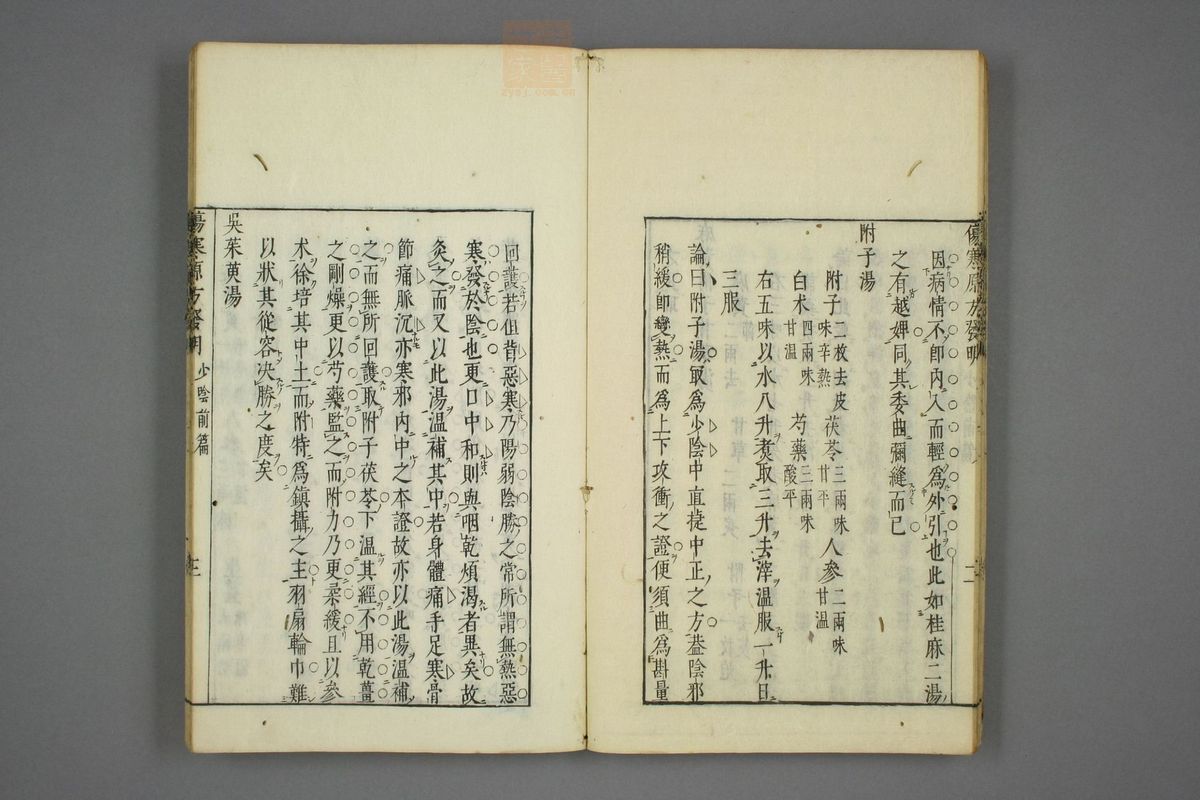 傷寒原方發明
因病情不卽內入而輕爲外引也此如桂麻二湯
之有越婢同其委曲彌縫而已
附子湯
附子二枚去皮味辛熱 茯苓三兩味甘平 人參二兩味甘温
白术四兩味甘温 芍藥三兩味酸平
右五味以水八升煑取三升去滓溫服一升日
三服
論曰附子湯取爲少陰中直捷中正之方葢陰邪
稍緩卽變熱而爲上下攻衝之證便須曲爲斟量
回護若但背惡寒乃陽弱陰勝之常所謂無熱惡
寒發於陰也更口中和則與咽乾煩渴者異矣故
灸之而又以此湯溫補其中若身體痛手足寒骨
節痛脈沉亦寒邪內中之本證故亦以此湯溫補
之而無所回護取附子茯苓下溫其經不用乾薑
之剛燥更以芍藥監之而附力乃更柔緩且以參
术徐培其中土而附特爲鎮攝之主羽扇輪巾難
以狀其從容决勝之度矣
吳茱萸湯
傷寒源方發明 少陰前篇
zysj.com.cn